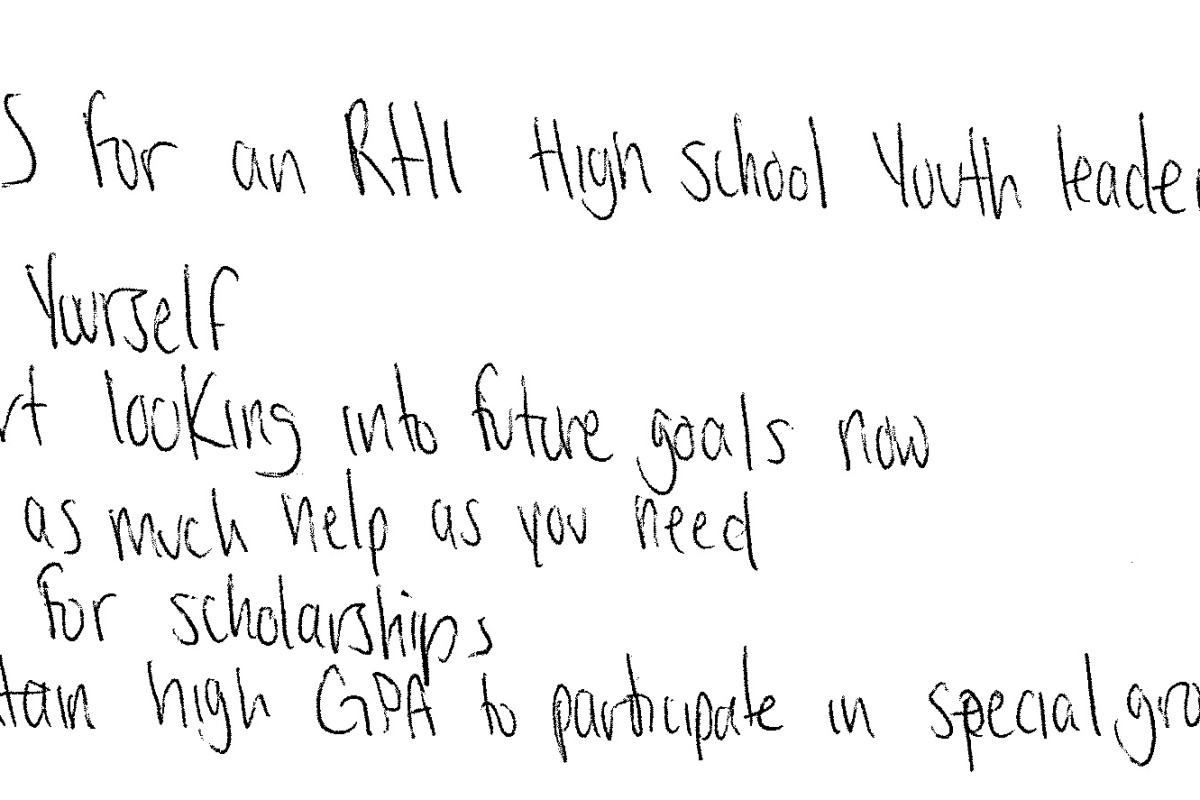 S for an RHI High school Youth leader
Yourself
rt looking into future goals now
as much help as you need
for scholarships
tain high GPA to participate in special gro